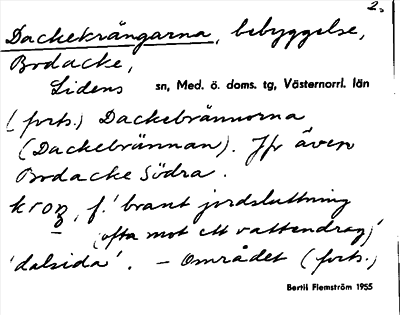 2.
Dackekrångarna, bebyggelse,
Bodacke,
Lidens sn, Med. ö. doms. tg, Västernorrl. län
(forts.) Dackebrännorna
(Dackebrännan). Jfr även
Bodacke Södra.
krong, f. 'brant jordsluttning
(ofta mot ett vattendrag)',
'dalsida'. – Området (forts.)
Bertil Flemström 1955